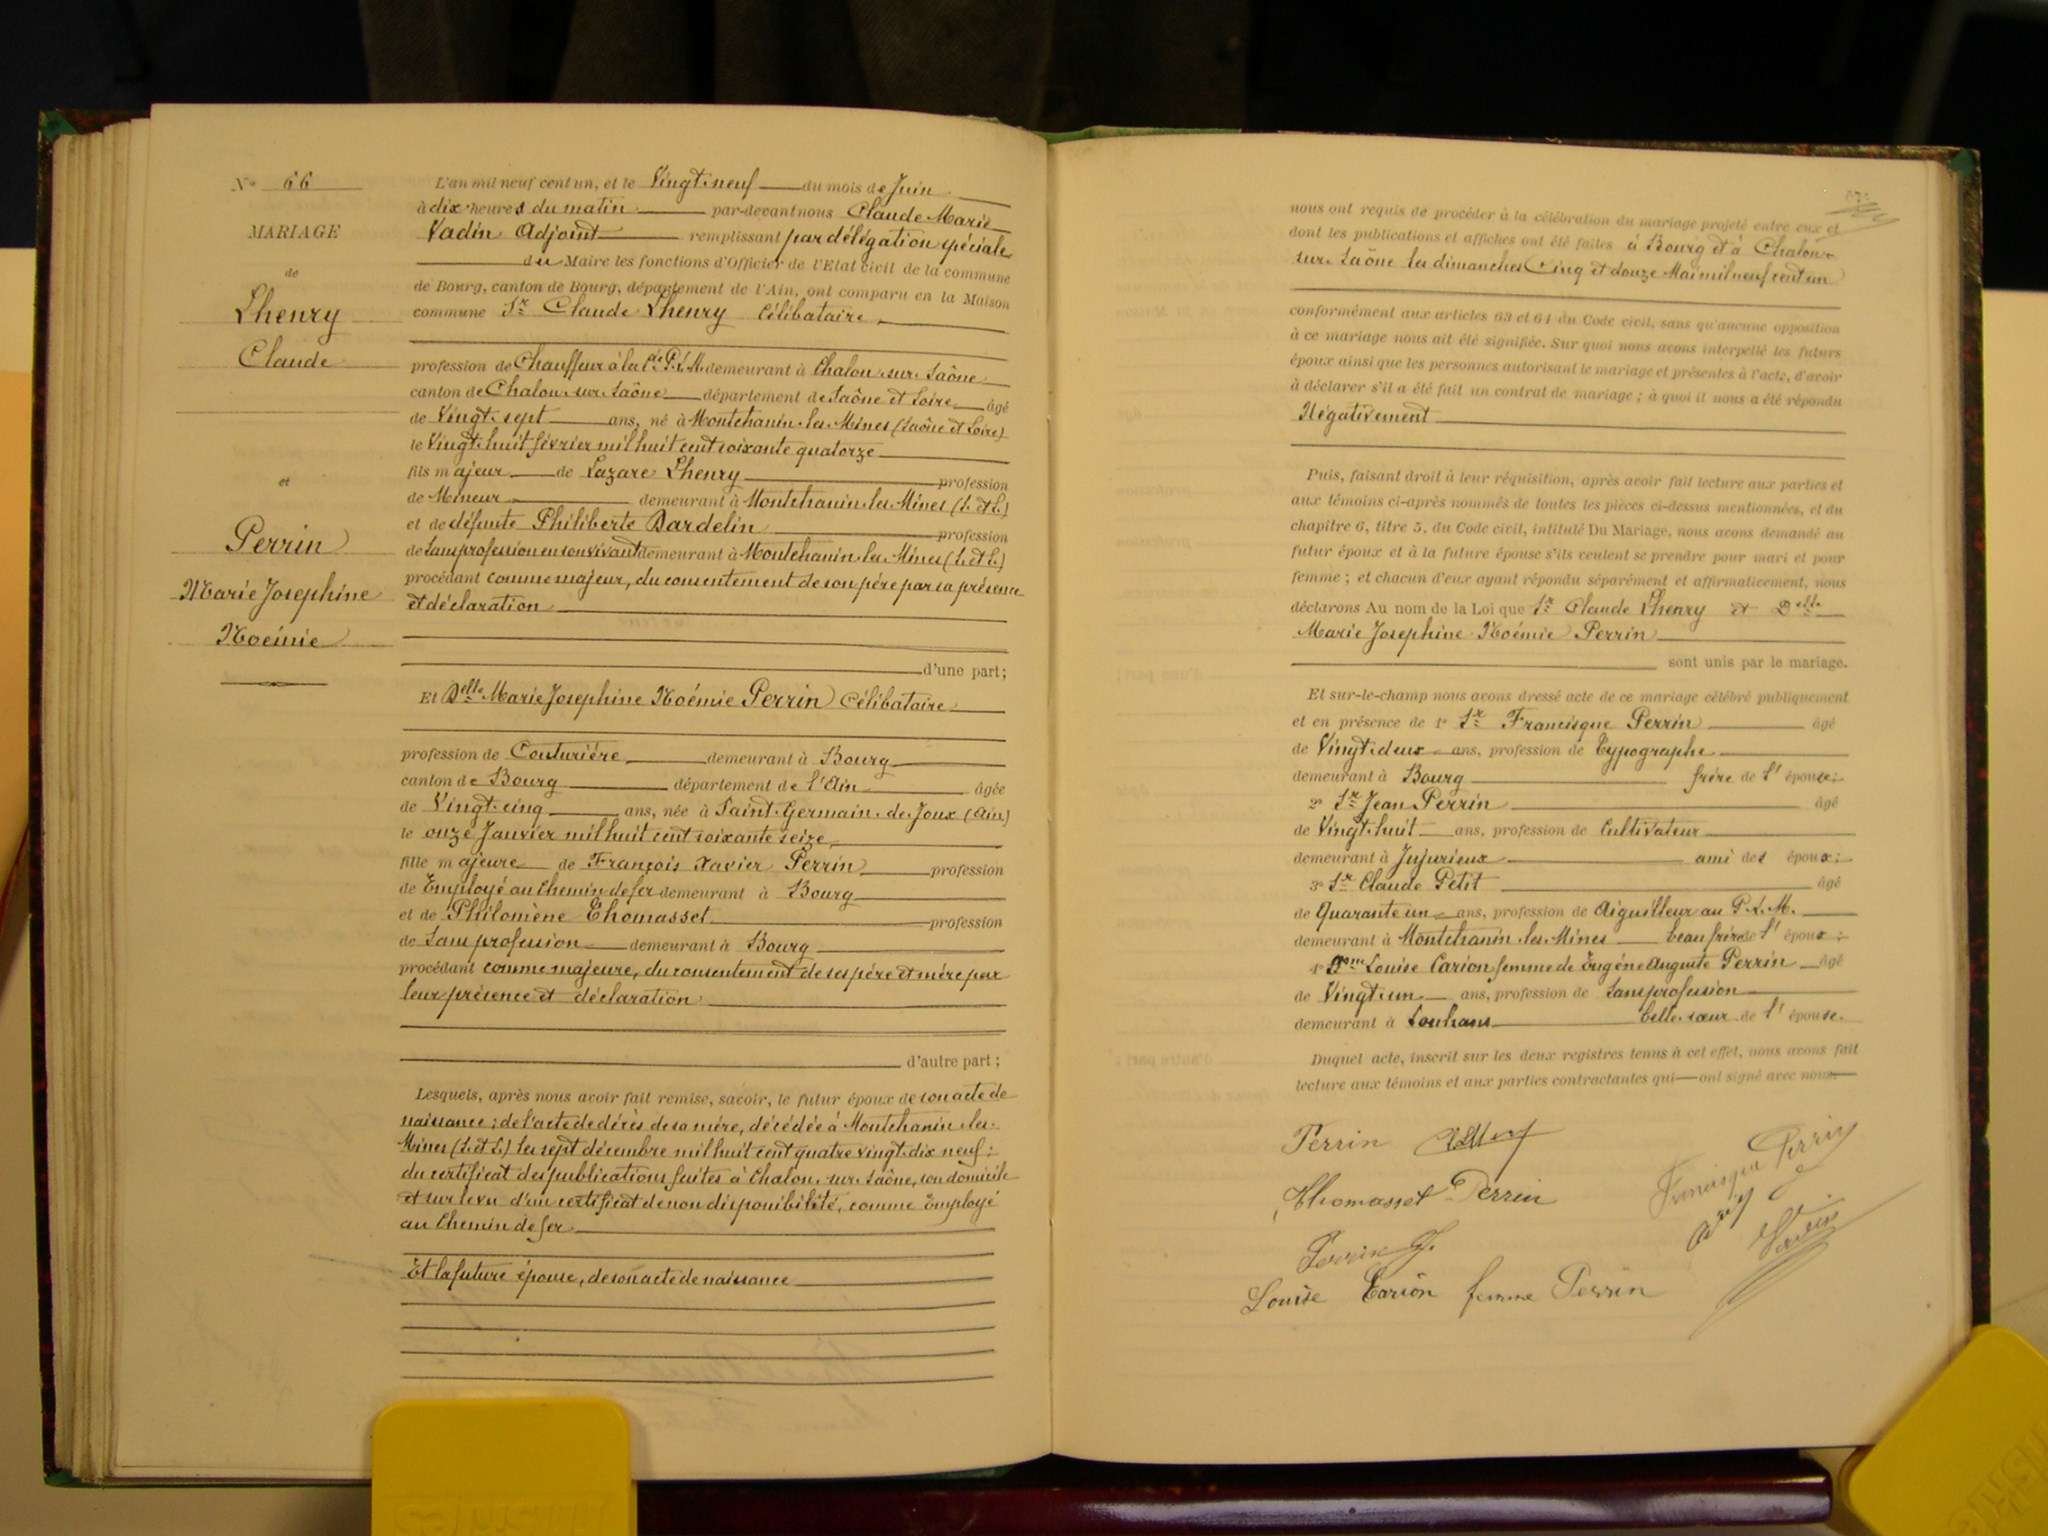 N° 66
MARIAGE
de
Lhenry
Claude
et
Perrin
Marie Josephine
Noémie
L'an mil neuf cent un, et le Vingt-neuf du mois de Juin
à dix heures du matin par-devant nous Claude Marie
Vadin Adjoint remplissant par délégation spéciale
du Maire les fonctions d'Officier de l'Etat civil de la commune
de Bourg, canton de Bourg, département de l'Ain, ont comparu en la Maison
commune Sr Claude Lhenry Célibataire
profession de Chauffeur à la Cie P.L.M. demeurant à Chalon-sur-Saône
canton de Chalon-sur-Saône département de Saône et Loire âgé
de Vingt-sept ans, né à Montchanin-les-Mines (Saône et Loire)
le Vingt-huit février mil huit cent soixante quatorze
fils majeur de Lazare Lhenry profession
de Mineur demeurant à Montchanin-les-Mines (S. et L.)
et de défunte Philiberte Dardelin profession
de Sans profession en son vivant demeurant à Montchanin-les-Mines (S. et L.)
procédant comme majeur, du consentement de son père par sa présence
et déclaration
d'une part;
Et Delle Marie Josephine Noémie Perrin Célibataire
profession de Couturière demeurant à Bourg
canton de Bourg département de l'Ain âgée
de Vingt-cinq ans, née à Saint-Germain-de-Joux (Ain)
le onze Janvier mil huit cent soixante seize
fille majeure de François Xavier Perrin profession
de Employé au Chemin de fer demeurant à Bourg
et de Philomène Thomasset profession
de Sans profession demeurant à Bourg
procédant comme majeure, du consentement de ses père et mère par
leur présence et déclaration
d'autre part;
Lesquels, après nous avoir fait remise, savoir, le futur époux de son acte de
naissance; de l'acte de décès de sa mère, décédée à Montchanin-les-
Mines (S. et L.) le sept décembre mil huit cent quatre vingt-dix neuf;
du certificat des publications faites à Chalon-sur-Saône, son domicile
et sur le vu d'un certificat de non disponibilité, comme Employé
au Chemin de fer
Et la future épouse, de son acte de naissance
nous ont requis de procéder à la célébration du mariage projeté entre eux et
dont les publications et affiches ont été faites à Bourg et à Chalon-
sur-Saône les dimanches Cinq et douze Mai mil neuf cent un
conformément aux articles 63 et 64 du Code civil, sans qu'aucune opposition
à ce mariage nous ait été signifiée. Sur quoi nous avons interpellé les futurs
époux ainsi que les personnes autorisant le mariage et présentes à l'acte, d'avoir
à déclarer s'il a été fait un contrat de mariage; à quoi il nous a été répondu
Négativement
Puis, faisant droit à leur réquisition, après avoir fait lecture aux parties et
aux témoins ci-après nommés de toutes les pièces ci-dessus mentionnées, et du
chapitre 6, titre 5, du Code civil, intitulé Du Mariage, nous avons demandé au
futur époux et à la future épouse s'ils veulent se prendre pour mari et pour
femme; et chacun d'eux ayant répondu séparément et affirmativement, nous
déclarons Au nom de la Loi que Sr Claude Lhenry et Delle
Marie Josephine Noémie Perrin
sont unis par le mariage.
Et sur-le-champ nous avons dressé acte de ce mariage célébré publiquement
et en présence de 1° Sr Francisque Perrin âgé
de Vingt-deux ans, profession de Typographe
demeurant à Bourg frère de l'épouse;
2° Sr Jean Perrin âgé
de Vingt-huit ans, profession de Cultivateur
demeurant à Jujurieux ami des époux;
3° Sr Claude Petit âgé
de Quarante un ans, profession de Aiguilleur au P.L.M.
demeurant à Montchanin-les-Mines beau frère de l'époux;
4° Dme Louise Carion femme de Eugène Auguste Perrin âgé
de Vingt-un ans, profession de Sans profession
demeurant à Louhans belle-sœur de l'épouse.
Duquel acte, inscrit sur les deux registres tenus à cet effet, nous avons fait
lecture aux témoins et aux parties contractantes qui ont signé avec nous.
Perrin
Thomasset Perrin
Francisque Perrin
Perrin J.
Vadin
Louise Carion femme Perrin